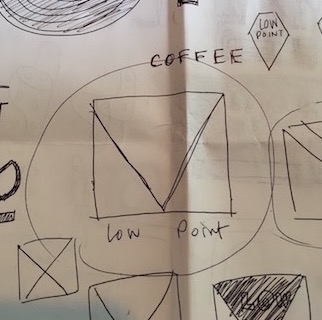 LOW
POINT
COFFEE
Low Point